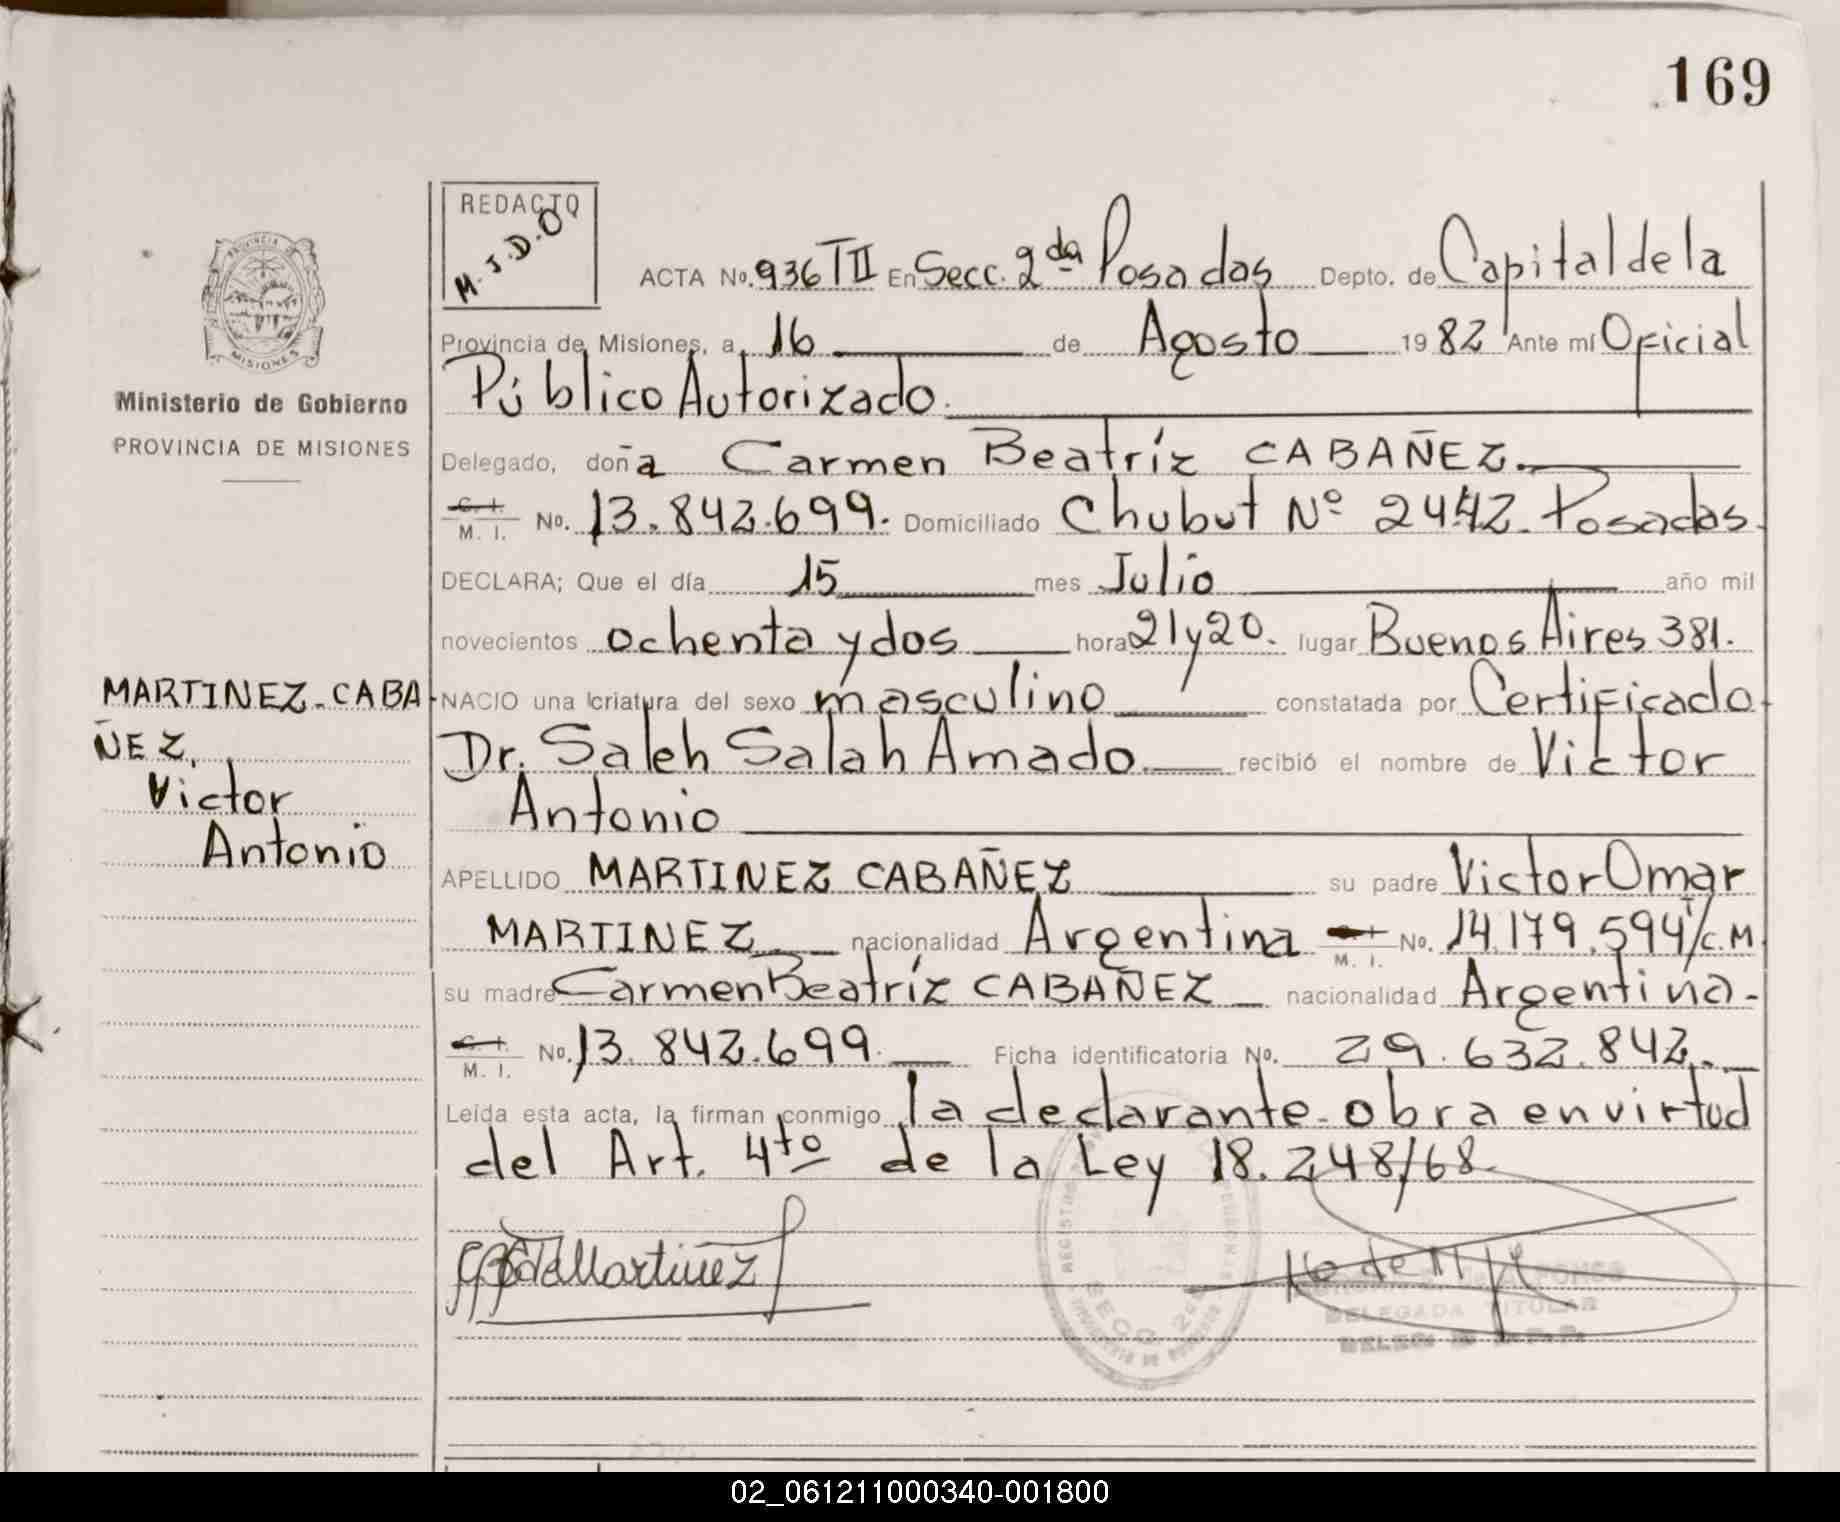 169
REDACTO
M.J.D.O
ACTA No. 936 TII En Secc. 2da Posadas Depto. de Capital de la
Provincia de Misiones, a 16 de Agosto 1982 Ante mí Oficial
Público Autorizado.
Delegado, doña Carmen Beatríz CABAÑEZ.
C. I.
M. I. No. 13.842.699. Domiciliado Chubut Nº 2442. Posadas
DECLARA; Que el día 15 mes Julio año mil
novecientos ochenta y dos hora 21 y 20. lugar Buenos Aires 381.
NACIO una criatura del sexo masculino constatada por Certificado
Dr. Saleh Salah Amado recibió el nombre de Victor
Antonio
APELLIDO MARTINEZ CABAÑEZ su padre Victor Omar
MARTINEZ nacionalidad Argentina M. I. No. 14.179.594 T/C.M
su madre Carmen Beatríz CABAÑEZ nacionalidad Argentina-
C. I.
M. I. No. 13.842.699. Ficha identificatoria No. 29.632.842.
Leída esta acta, la firman conmigo la declarante. obra en virtud
del Art. 4to de la Ley 18.248/68.
Martinez
DELEGADA TITULAR
PROVINCIA DE
MISIONES
Ministerio de Gobierno
PROVINCIA DE MISIONES
MARTINEZ-CABA
ÑEZ,
Victor
Antonio
02_061211000340-001800